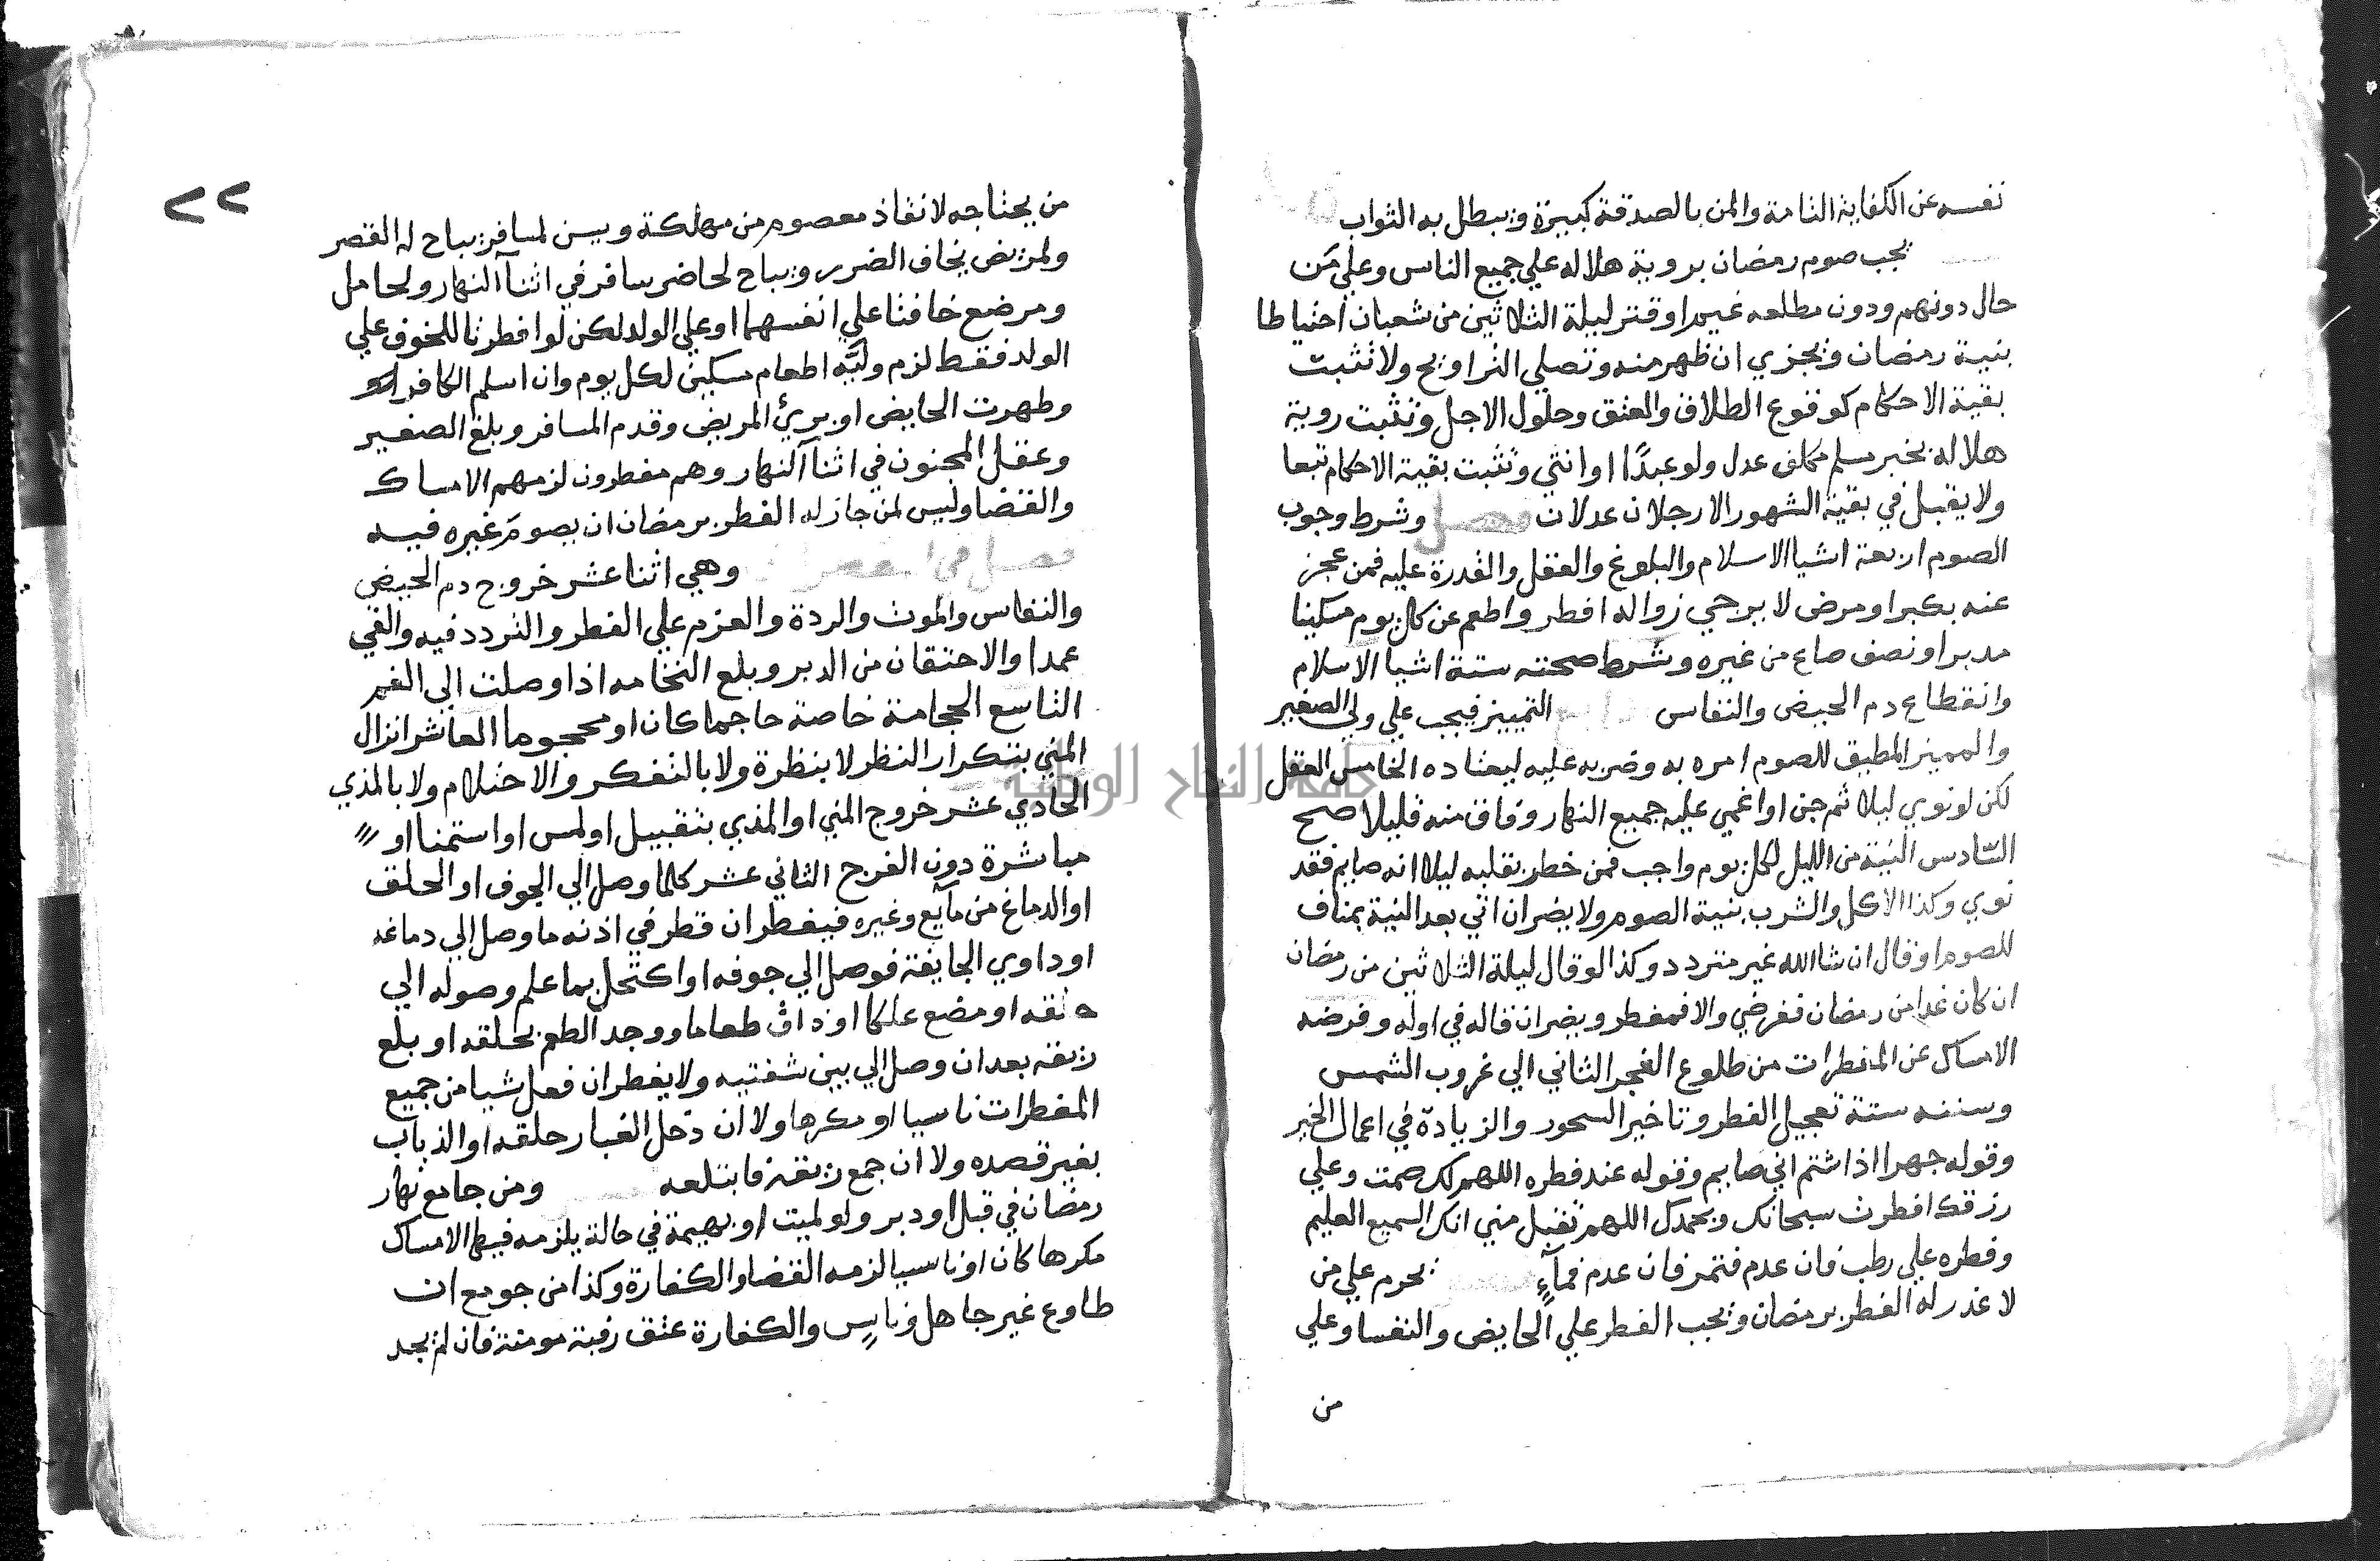 نفسه عن الكفاية التامة والمن بالصدقة كبيرة ويبطل به الثواب
يجب صوم رمضان بروية هلاله علي جميع الناس وعلي مَن
حال دونهم ودون مطلعه غيم او قتر ليلة الثلاثين من شعبان احتياطا
بنية رمضان ويجزي ان ظهر منه وتصلي التراويح ولا تثبت
بقية الاحكام كوقوع الطلاق والعتق وحلول الاجل وتثبت روية
هلاله بخبر مسلم مكلف عدل ولو عبدًا او انثي وتثبت بقية الاحكام تبعا
ولا يقبل في بقية الشهور الا رجلان عدلان فصل وشرط وجوب
الصوم اربعة اشيا الاسلام والبلوغ والعقل والقدرة عليه فمن عجز
عنه بكبر او مرض لا يرجي زواله افطر واطعم عن كل يوم مسكينا
مد بر او نصف صاع من غيره وشرط صحته ستة اشيا الاسلام
وانقطاع دم الحيض والنفاس التمييز فيجب علي ولي الصغير
والمميز المطيق للصوم امره به وضربه عليه ليعتاده الخامس العقل
لكن لو نوي ليلا ثم جن او اغمي عليه جميع النهار وفاق منه قليلا صح
السّادس النية من الليل لكل يوم واجب فمن خطر بقلبه ليلا انه صايم فقد
نوي وكذا الاكل والشرب بنية الصوم ولا يضر ان اتي بعد النية بمناف
للصوم او قال ان شا الله غير متردد وكذا لو قال ليلة الثلاثين من رمضان
ان كان غدا من رمضان ففرضي والا فمفطر ويضر ان قاله في اوله وفرضه
الامساك عن المفطرات من طلوع الفجر الثاني الي غروب الشمس
وسننه ستة تعجيل الفطر وتاخير السحور والزيادة في اعمال الخير
وقوله جهرا اذا شتم اني صايم وقوله عند فطره اللهم لك صمت وعلي
رزقك افطرت سبحانك وبحمدك اللهم تقبل مني انك السميع العليم
وفطره علي رطب فان عدم فتمر فان عدم فمآءٍ يحرم علي من
لا عذر له الفطر برمضان ويجب الفطر علي الحايض والنفسا وعلي
من
٢٢
من يحتاجه لانقاذ معصوم من مهلكة ويسن لمسافر يباح له القصر
ولمريض يخاف الضرر ويباح لحاضر سافر في اثنآ النهار ولحامل
ومرضع خافتا علي انفسهما او علي الولد لكن لو افطرتا للخوف علي
الولد فقط لزم وليَّه اطعام مسكين لكل يوم وان اسلم الكافر
وطهرت الحايض او بريُ المريض وقدم المسافر وبلغ الصغير
وعقل المجنون في اثنآ النهار وهم مفطرون لزمهم الامساك
والقضا وليس لمن جاز له الفطر برمضان ان يصومَ غيره فيه
فصل في وهي اثنا عشر خروج دم الحيض
والنفاس والموت والردة والعزم علي الفطر والتردد فيه والقي
عمدا والاحتقان من الدبر وبلع النخامه اذا وصلت الي الفم
التاسع الحجامة خاصة حاجما كان او محجوما العاشر انزال
المني بتكرار النظر لا بنظرة ولا بالتفكر والاحتلام ولا بالمذي
الحادي عشر خروج المني او المذي بتقبيل او لمس او استمنا او
مباشرة دون الفرج الثاني عشر كلما وصل الي الجوف او الحلق
او الدماغ من مآيع وغيره فيفطر ان قطر في اذنه ما وصل الي دماغه
او داوي الجايفة فوصل الي جوفه او اكتحل بما علم وصوله الي
حلقه او مضغ علكا او ذاق طعاما ووجد الطعم بحلقه او بلع
ريقه بعد ان وصل الي بين شفتيه ولا يفطر ان فعل شيا من جميع
المفطرات ناسيا او مكرها ولا ان دخل الغبار حلقه او الذباب
بغير قصده ولا ان جمع ريقه فابتلعه ومن جامع نهار
رمضان في قبل او دبر ولو لميت او بهيمة في حالة يلزمه فيها الامساك
مكرها كان او ناسيا لزمه القضا والكفارة وكذا من جومع ان
طاوع غير جاهل وناسٍ والكفارة عتق رقبة مومنة فان لم يجد
جامعة النجاح الوطنية